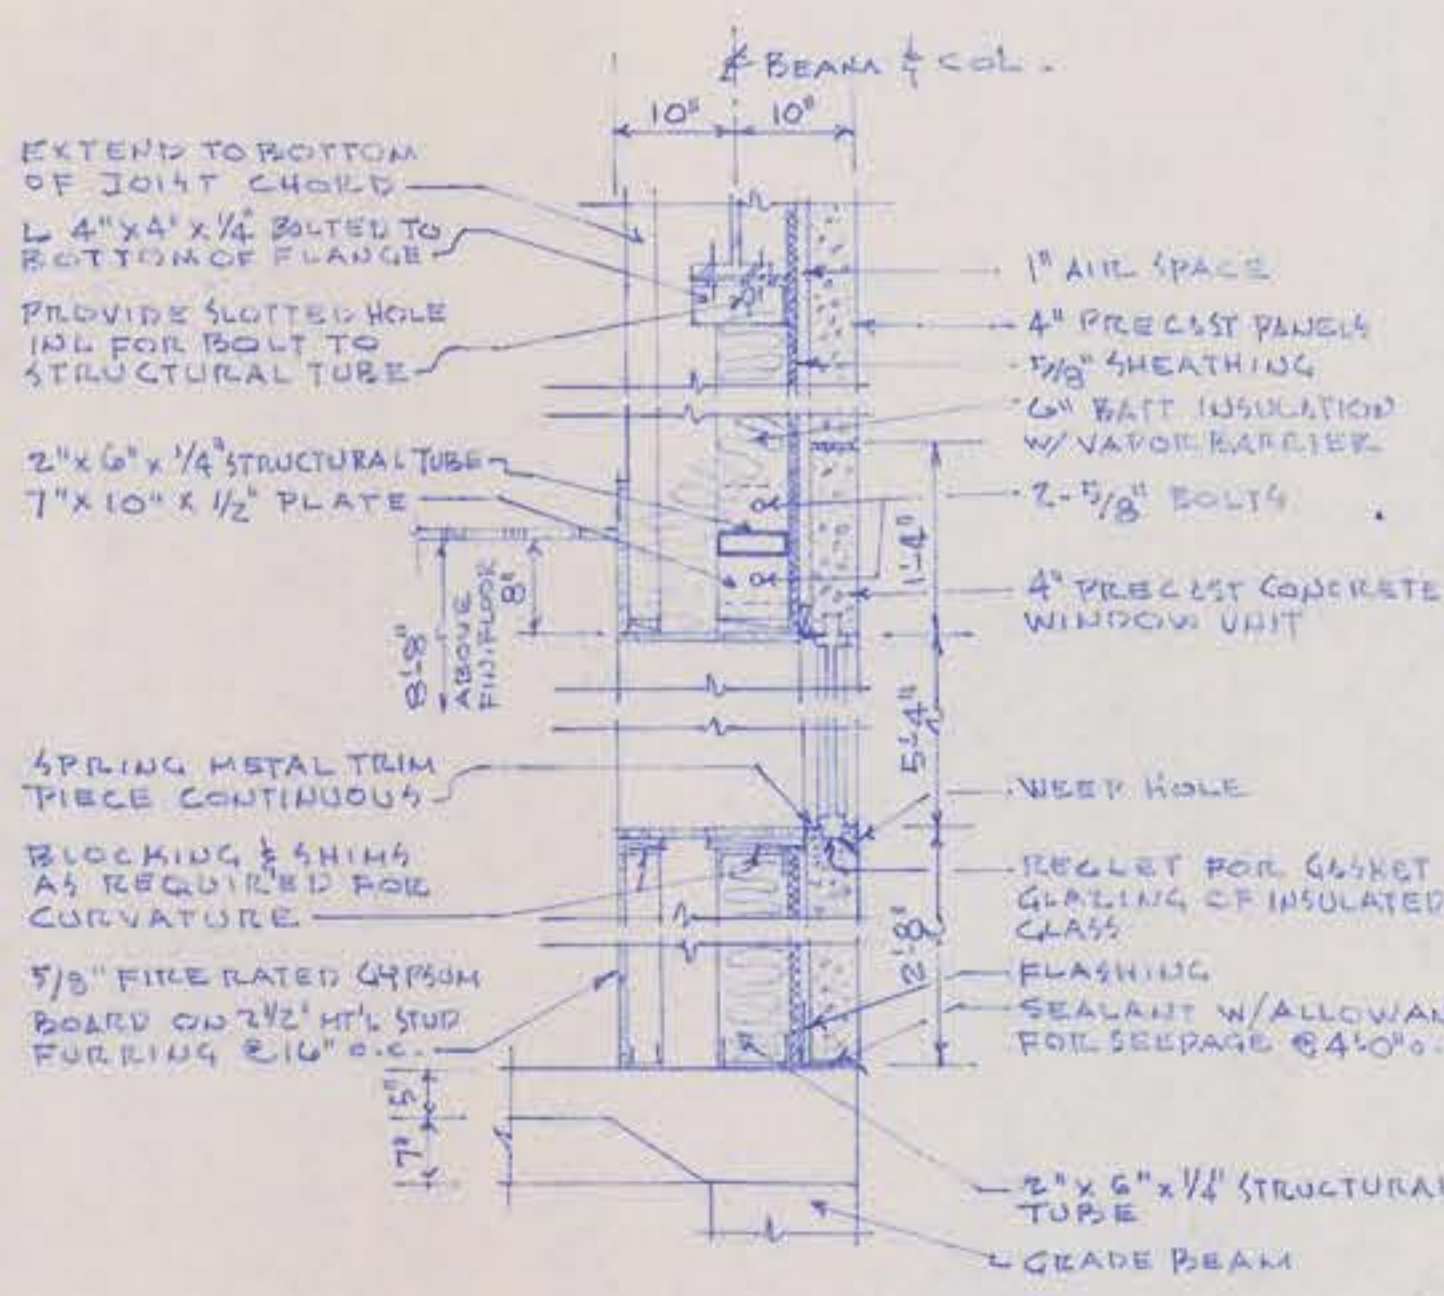 ℄ BEAM & COL.
10" 10"
EXTEND TO BOTTOM
OF JOIST CHORD
L 4" X 4" X 1/4" BOLTED TO
BOTTOM OF FLANGE
PROVIDE SLOTTED HOLE
IN L FOR BOLT TO
STRUCTURAL TUBE
2" X 6" X 1/4" STRUCTURAL TUBE
7" X 10" X 1/2" PLATE
8'-8"
ABOVE
FIN. FLOOR
8"
SPRING METAL TRIM
PIECE CONTINUOUS
BLOCKING & SHIMS
AS REQUIRED FOR
CURVATURE
5/8" FIRE RATED GYPSUM
BOARD ON 2 1/2" MT'L STUD
FURRING @ 16" O.C.
5"
7"
1" AIR SPACE
4" PRECAST PANELS
5/8" SHEATHING
6" BATT INSULATION
W/ VAPOR BARRIER
2-5/8" BOLTS
1'-4"
4" PRECAST CONCRETE
WINDOW UNIT
5'-4"
WEEP HOLE
REGLET FOR GASKET
GLAZING OF INSULATED
GLASS
2'-8"
FLASHING
SEALANT W/ALLOWAN
FOR SEEPAGE @ 4'-0" O.
2" X 6" X 1/4" STRUCTURAL
TUBE
GRADE BEAM